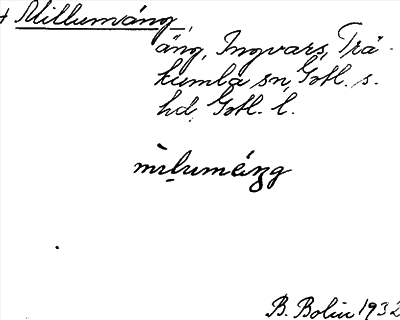 + Millumäng,
äng, Ingvars, Trä-
kumla sn, Gotl. s.
hd, Gotl. l.
B. Bolin 1932